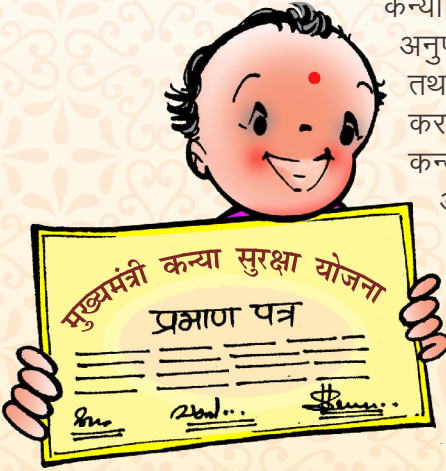 कन्या
अनुप
तथ
कर
कन्
मुख्यमंत्री कन्या सुरक्षा योजना
प्रमाण पत्र